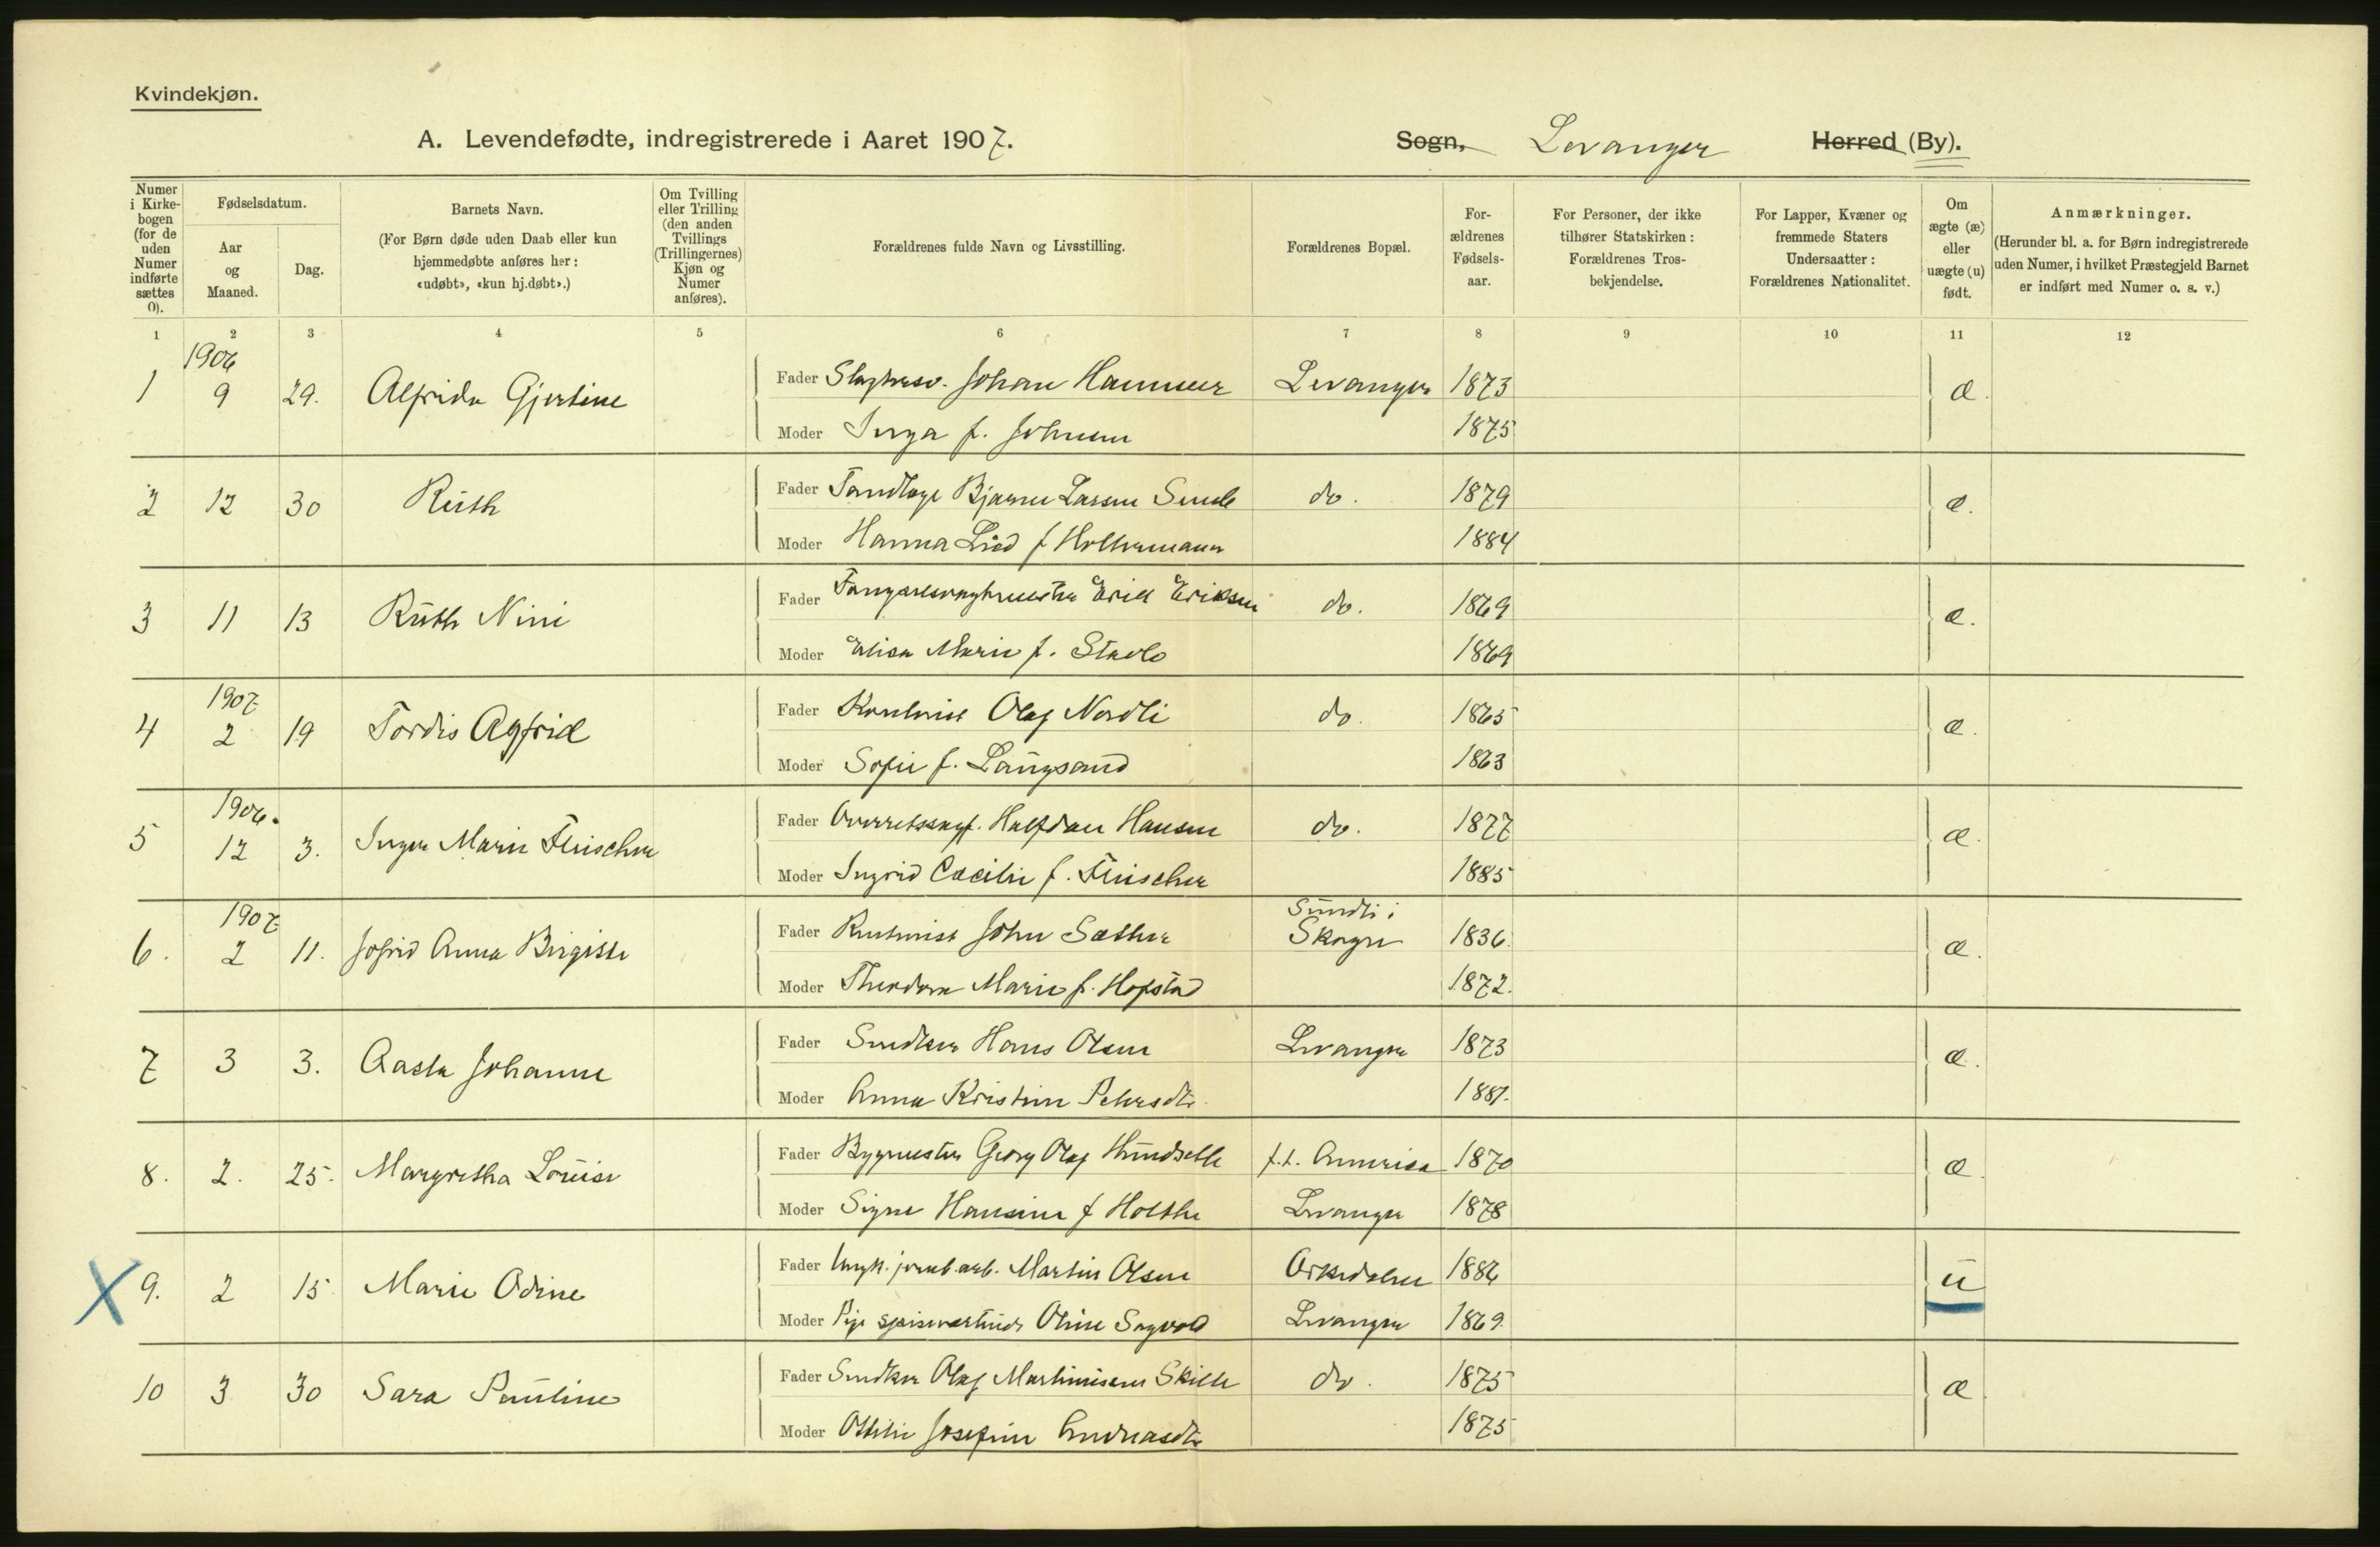 Kvindekjøn.
A. Levendefødte, indregistrerede i Aaret 1907.
Sogn, Levanger Herred (By).
Numer i Kirkebogen (for de uden Numer indførte sættes 0).
Fødselsdatum.
Aar og Maaned.
Dag.
Barnets Navn.
(For Børn døde uden Daab eller kun hjemmedøbte anføres her: «udøbt», «kun hj.døbt».)
Om Tvilling eller Trilling (den anden Tvillings (Trillingernes) Kjøn og Numer anføres).
Forældrenes fulde Navn og Livsstilling.
Forældrenes Bopæl.
Forældrenes Fødselsaar.
For Personer, der ikke tilhører Statskirken: Forældrenes Trosbekjendelse.
For Lapper, Kvæner og fremmede Staters Undersaatter: Forældrenes Nationalitet.
Om ægte (æ) eller uægte (u) født.
Anmærkninger.
(Herunder bl. a. for Børn indregistrerede uden Numer, i hvilket Præstegjeld Barnet er indført med Numer o. s. v.)
1 2 3 4 5 6 7 8 9 10 11 12
1906
1 9 29. Alfrida Gjertine Fader Johan Hammer Levanger 1873 æ.
Moder Inga f. Johnsen 1875
2 12 30 Ruth Fader Tandlæge Bjarne Larsen Sunde do. 1879 æ.
Moder Hanna Lied f Holtermann 1884
3 11 13 Ruth Nini Fader Erick Eriksen do. 1869 æ.
Moder Elisa Marie f. 1869
1907
4 2 19 Tordis Agfrid Fader Olaf Nordli do. 1865 æ.
Moder Sofie f. Langsand 1863
1906.
5 12 3. Inger Marie Fleischer Fader Overretssagf. Halfdan Hansen do. 1877 æ.
Moder Ingrid Cæcilie f. Fleischer 1885
1907
Sundli i
6. 2 11. Jofrid Anna Birgitte Fader John Sæther Skogn 1836. æ.
Moder Theodora Marie f. Hofstad 1872.
7 3 3. Aasta Johanne Fader Snedker Hans Olsen Levanger 1873 æ.
Moder Anna Kristine Petersdtr. 1881.
8. 2. 25. Margretha Louise Fader Bygmester Georg Olaf f.t. Amerika 1870 æ.
Moder Signe Hansine f Holthe Levanger 1878
X 9. 2 15. Marie Odine Fader Ungk. jernb.arb. Martin Olsen Orkedalen 1886 u
Moder Pige Oline Levanger 1869.
10 3 30 Sara Pauline Fader Snedker Olaf Martiniusen do. 1875 æ.
Moder Ottilie Josefine Andreasdtr 1875